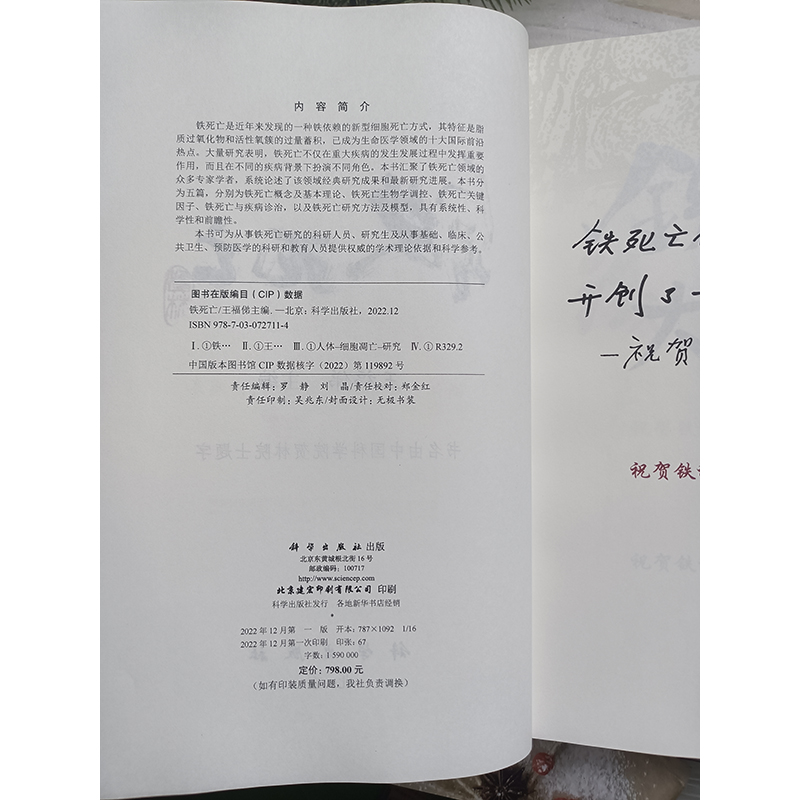 内容简介
铁死亡是近年来发现的一种铁依赖的新型细胞死亡方式，其特征是脂
质过氧化物和活性氧簇的过量蓄积，已成为生命医学领域的十大国际前沿
热点。大量研究表明，铁死亡不仅在重大疾病的发生发展过程中发挥重要
作用，而且在不同的疾病背景下扮演不同角色。本书汇聚了铁死亡领域的
众多专家学者，系统论述了该领域经典研究成果和最新研究进展。本书分
为五篇，分别为铁死亡概念及基本理论、铁死亡生物学调控、铁死亡关键
因子、铁死亡与疾病诊治，以及铁死亡研究方法及模型，具有系统性、科
学性和前瞻性。
本书可为从事铁死亡研究的科研人员、研究生及从事基础、临床、公
共卫生、预防医学的科研和教育人员提供权威的学术理论依据和科学参考。
图书在版编目（CIP）数据
铁死亡/王福俤主编. —北京：科学出版社，2022.12
ISBN 978-7-03-072711-4
Ⅰ.①铁… Ⅱ.①王… Ⅲ.①人体-细胞凋亡-研究 Ⅳ.①R329.2
中国版本图书馆CIP数据核字（2022）第119892号
责任编辑：罗 静 刘 晶/责任校对：郑金红
责任印制：吴兆东/封面设计：无极书装
书名由中国科学院贺林院士题字
科学出版社 出版
北京东黄城根北街16号
邮政编码：100717
http://www.sciencep.com
北京建宏印刷有限公司 印刷
科学出版社发行 各地新华书店经销
*
2022年12月第 一 版 开本：787×1092 1/16
2022年12月第一次印刷 印张：67
字数：1 590 000
定价：798.00元
（如有印装质量问题，我社负责调换）
铁死亡
开创了一
—祝贺
祝贺铁
祝贺铁